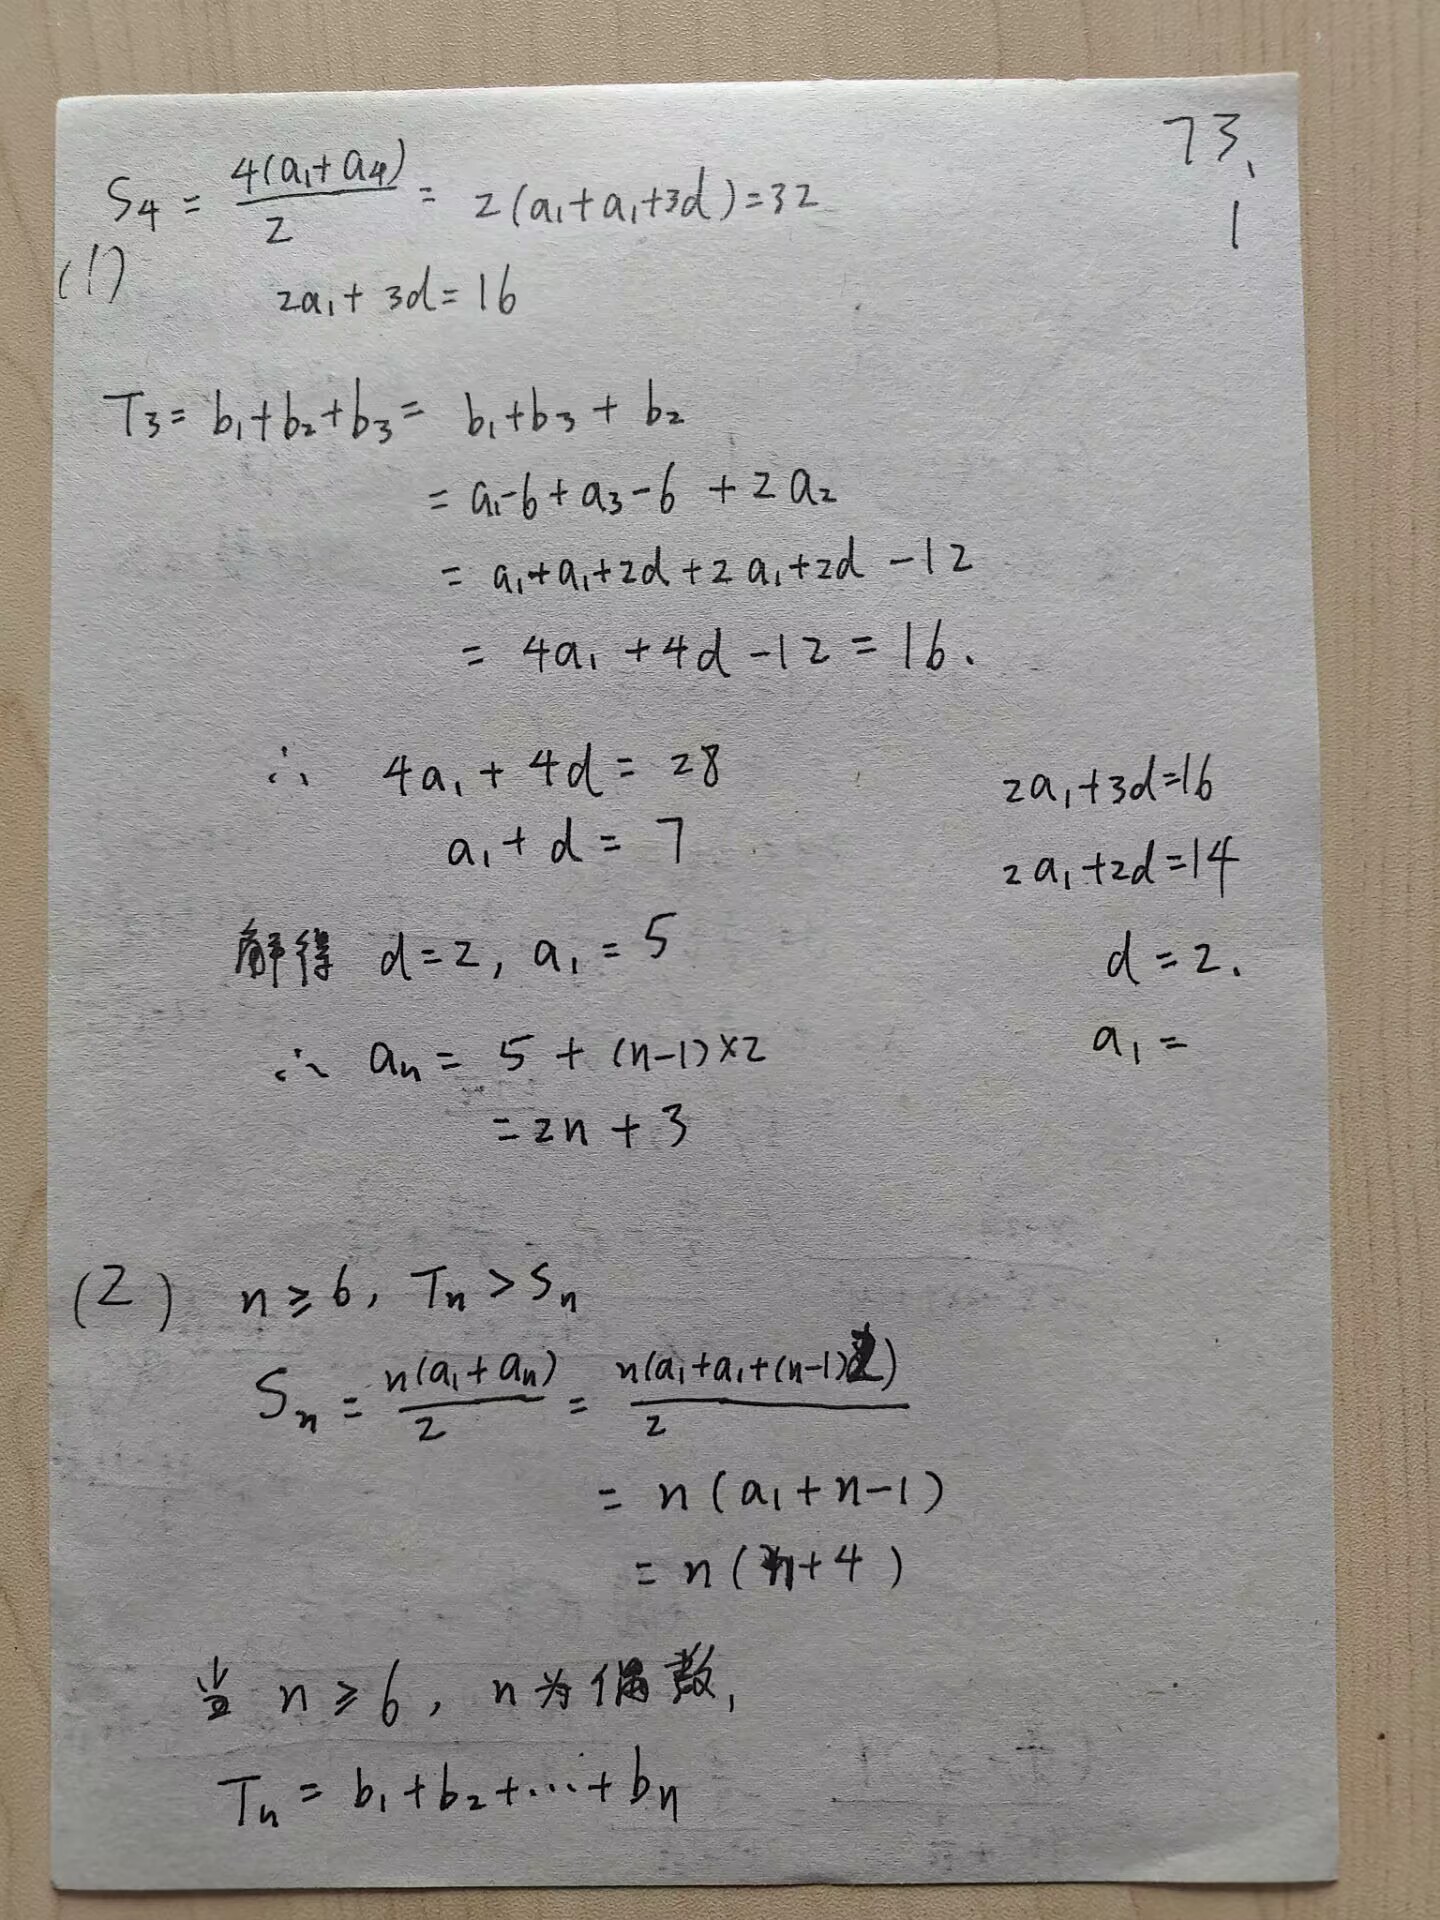 73.
1
S₄ = 4(a₁+a₄)/2 = 2(a₁+a₁+3d)=32
(1)
2a₁+3d=16
T₃= b₁+b₂+b₃= b₁+b₃+b₂
= a₁-6+a₃-6+2a₂
= a₁+a₁+2d+2a₁+2d-12
= 4a₁+4d-12=16.
∴ 4a₁+4d=28
a₁+d=7
解得 d=2, a₁=5
∴ aₙ= 5+(n-1)×2
=2n+3
2a₁+3d=16
2a₁+2d=14
d=2.
a₁=
(2) n≥6, Tₙ>Sₙ
Sₙ= n(a₁+aₙ)/2 = n(a₁+a₁+(n-1)2)/2
= n(a₁+n-1)
= n(n+4)
当 n≥6, n为偶数,
Tₙ= b₁+b₂+…+bₙ